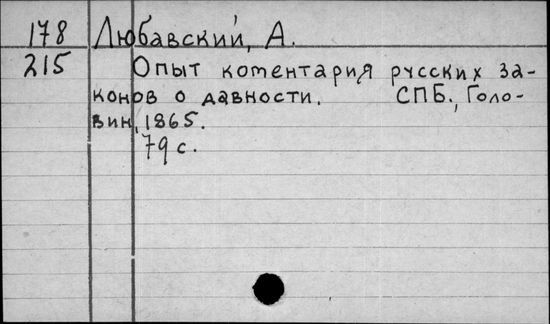 178 Любавский, А.
215 Опыт коментария русских за-
конов о давности. СПБ., Голо-
вин, 1865.
79 с.